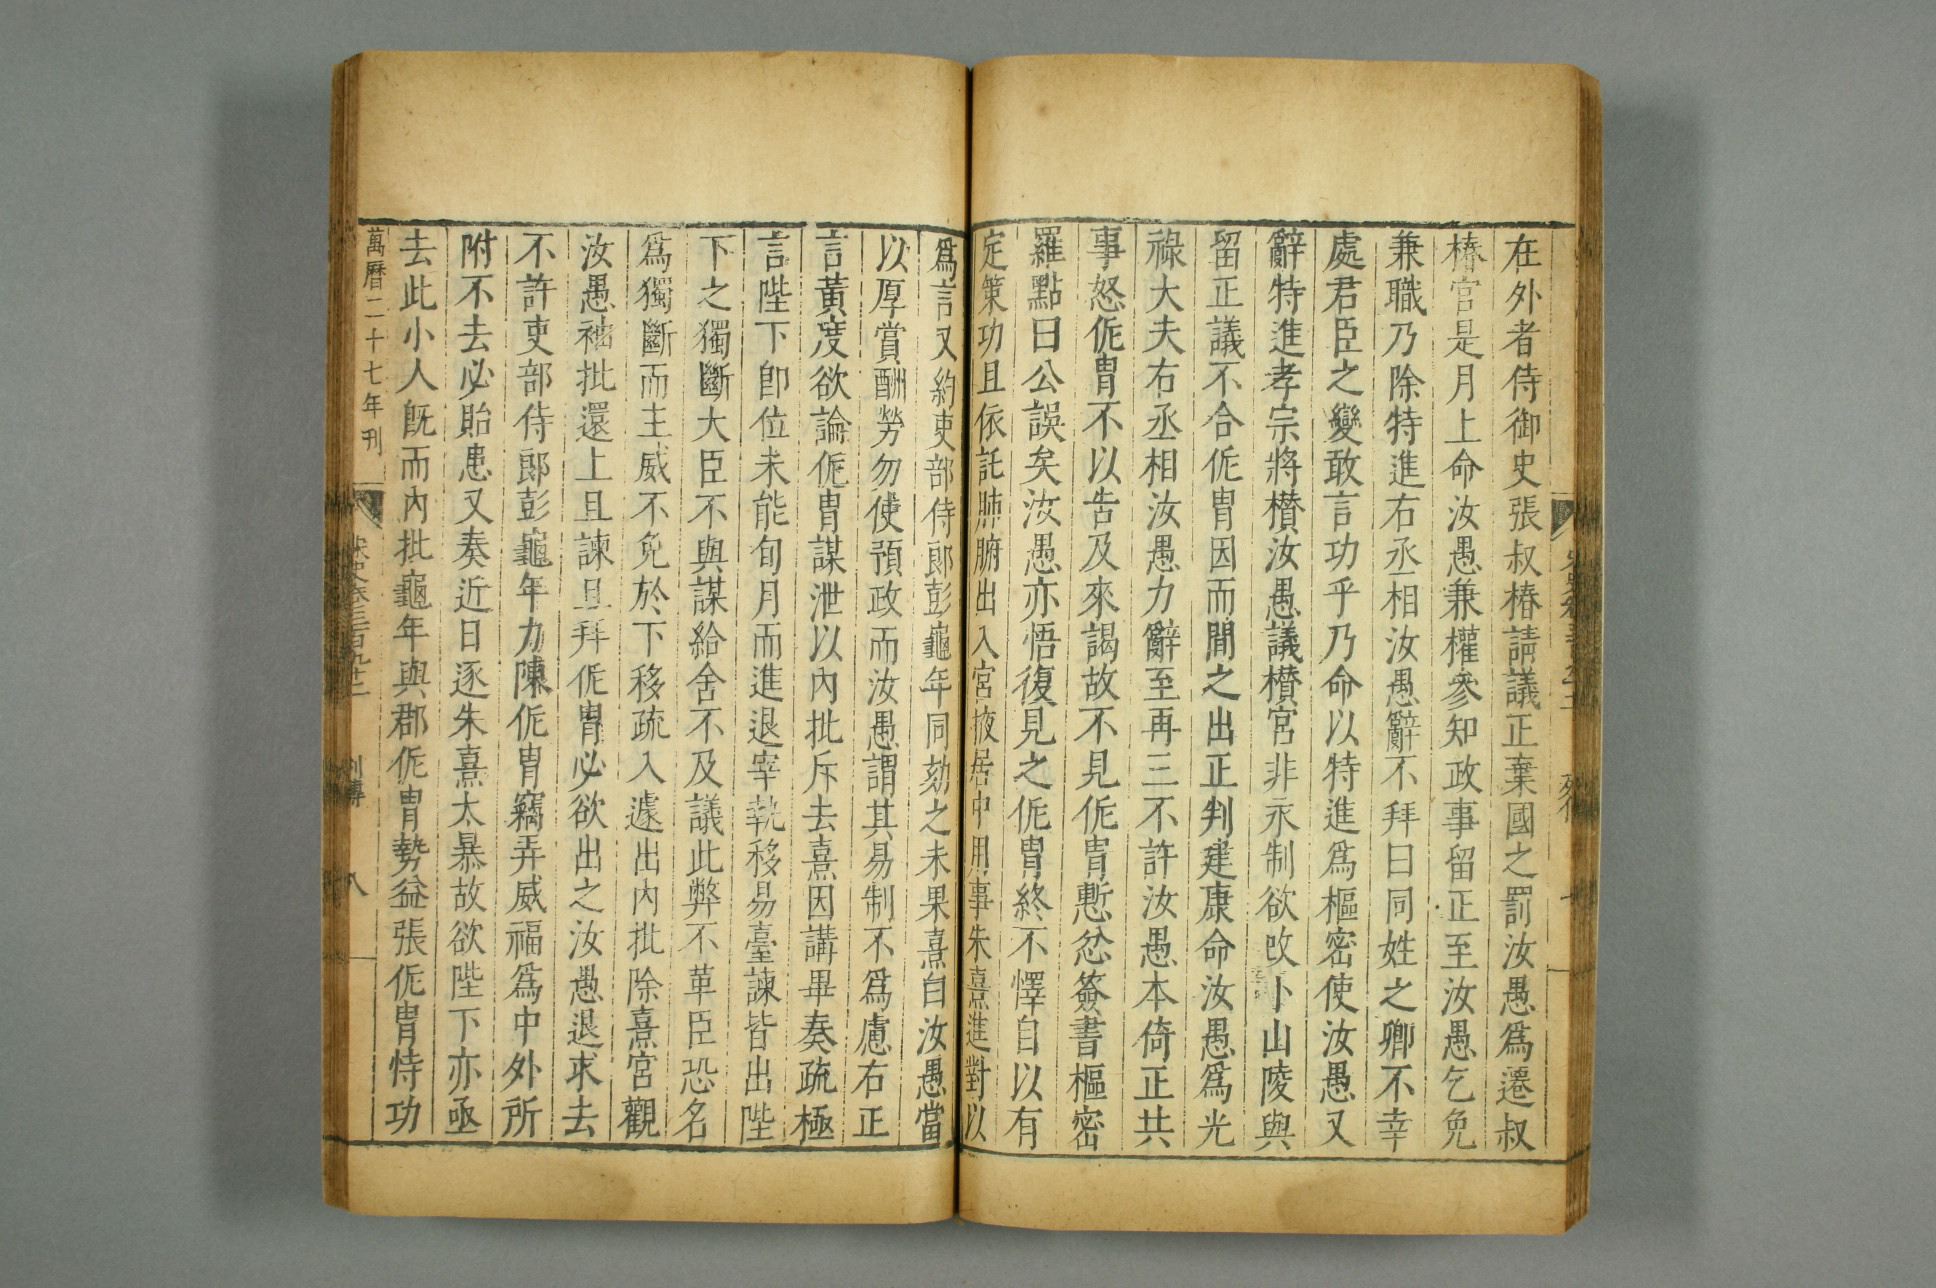 在外者侍御史張叔椿請議正棄國之罰汝愚爲遷叔
椿官是月上命汝愚兼權參知政事留正至汝愚乞免
兼職乃除特進右丞相汝愚辭不拜曰同姓之卿不幸
處君臣之變敢言功乎乃命以特進爲樞密使汝愚又
辭特進孝宗將欑汝愚議欑宮非永制欲改卜山陵與
留正議不合侂胄因而間之出正判建康命汝愚爲光
祿大夫右丞相汝愚力辭至再三不許汝愚本倚正共
事怒侂胄不以告及來謁故不見侂胄慙忿簽書樞密
羅點曰公誤矣汝愚亦悟復見之侂胄終不懌自以有
定策功且依託肺腑出入宮掖居中用事朱熹進對以
爲言又約吏部侍郎彭龜年同劾之未果熹白汝愚當
以厚賞酬勞勿使預政而汝愚謂其易制不爲慮右正
言黃度欲論侂胄謀泄以內批斥去熹因講畢奏疏極
言陛下卽位未能旬月而進退宰執移易臺諫皆出陛
下之獨斷大臣不與謀給舍不及議此弊不革臣恐名
爲獨斷而主威不免於下移疏入遽出內批除熹宮觀
汝愚袖批還上且諫且拜侂胄必欲出之汝愚退求去
不許吏部侍郎彭龜年力陳侂胄竊弄威福爲中外所
附不去必貽患又奏近日逐朱熹太暴故欲陛下亦亟
去此小人旣而內批龜年與郡侂胄勢益張侂胄恃功
萬曆二十七年刊 宋史卷三百九十二 列傳 八